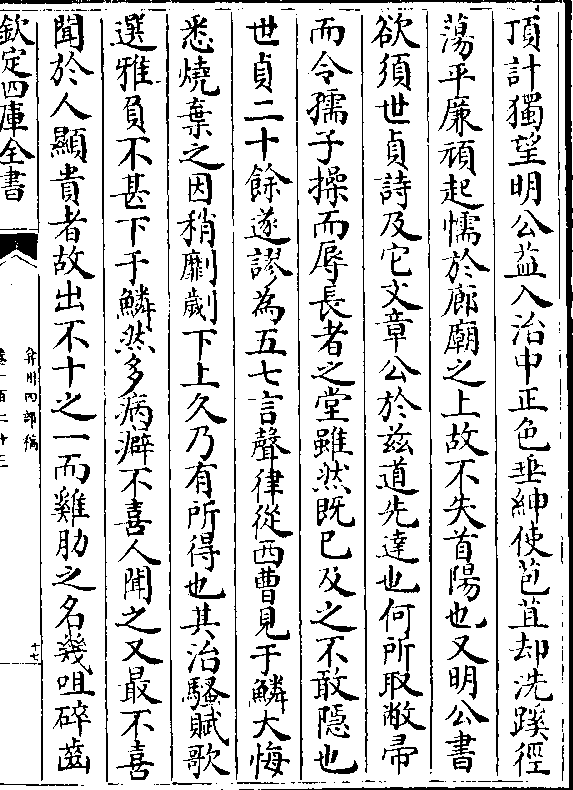 頂計獨望明公益入治中正色垂紳使苞苴却洗蹊徑
蕩平廉頑起懦於廊廟之上故不失首陽也又明公書
欲須世貞詩及它文章公於兹道先達也何所取敝帚
而令孺子操而辱長者之堂雖然既已及之不敢隱也
世貞二十餘遂謬為五七言聲律從西曹見于鱗大悔
悉燒棄之因稍劘劌下上久乃有所得也其治騷賦歌
選雅負不甚下于鱗然多病癖不喜人聞之又最不喜
聞於人顯貴者故出不十之一而雞肋之名幾咀碎齒
欽定四庫全書
弇州四部稿
卷一百二十三
十七